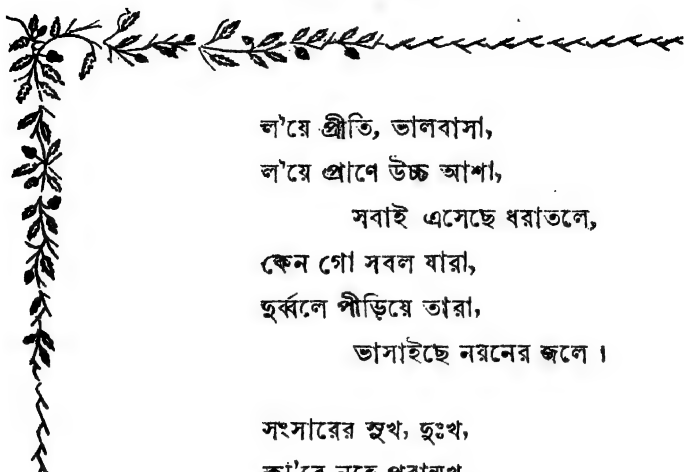 ল'য়ে প্রীতি, ভালবাসা,
ল'য়ে প্রাণে উচ্চ আশা,
সবাই এসেছে ধরাতলে,
কেন গো সবল যারা,
দুর্ব্বলে পীড়িয়ে তারা,
ভাসাইছে নয়নের জলে।
সংসারের সুখ, দুঃখ,